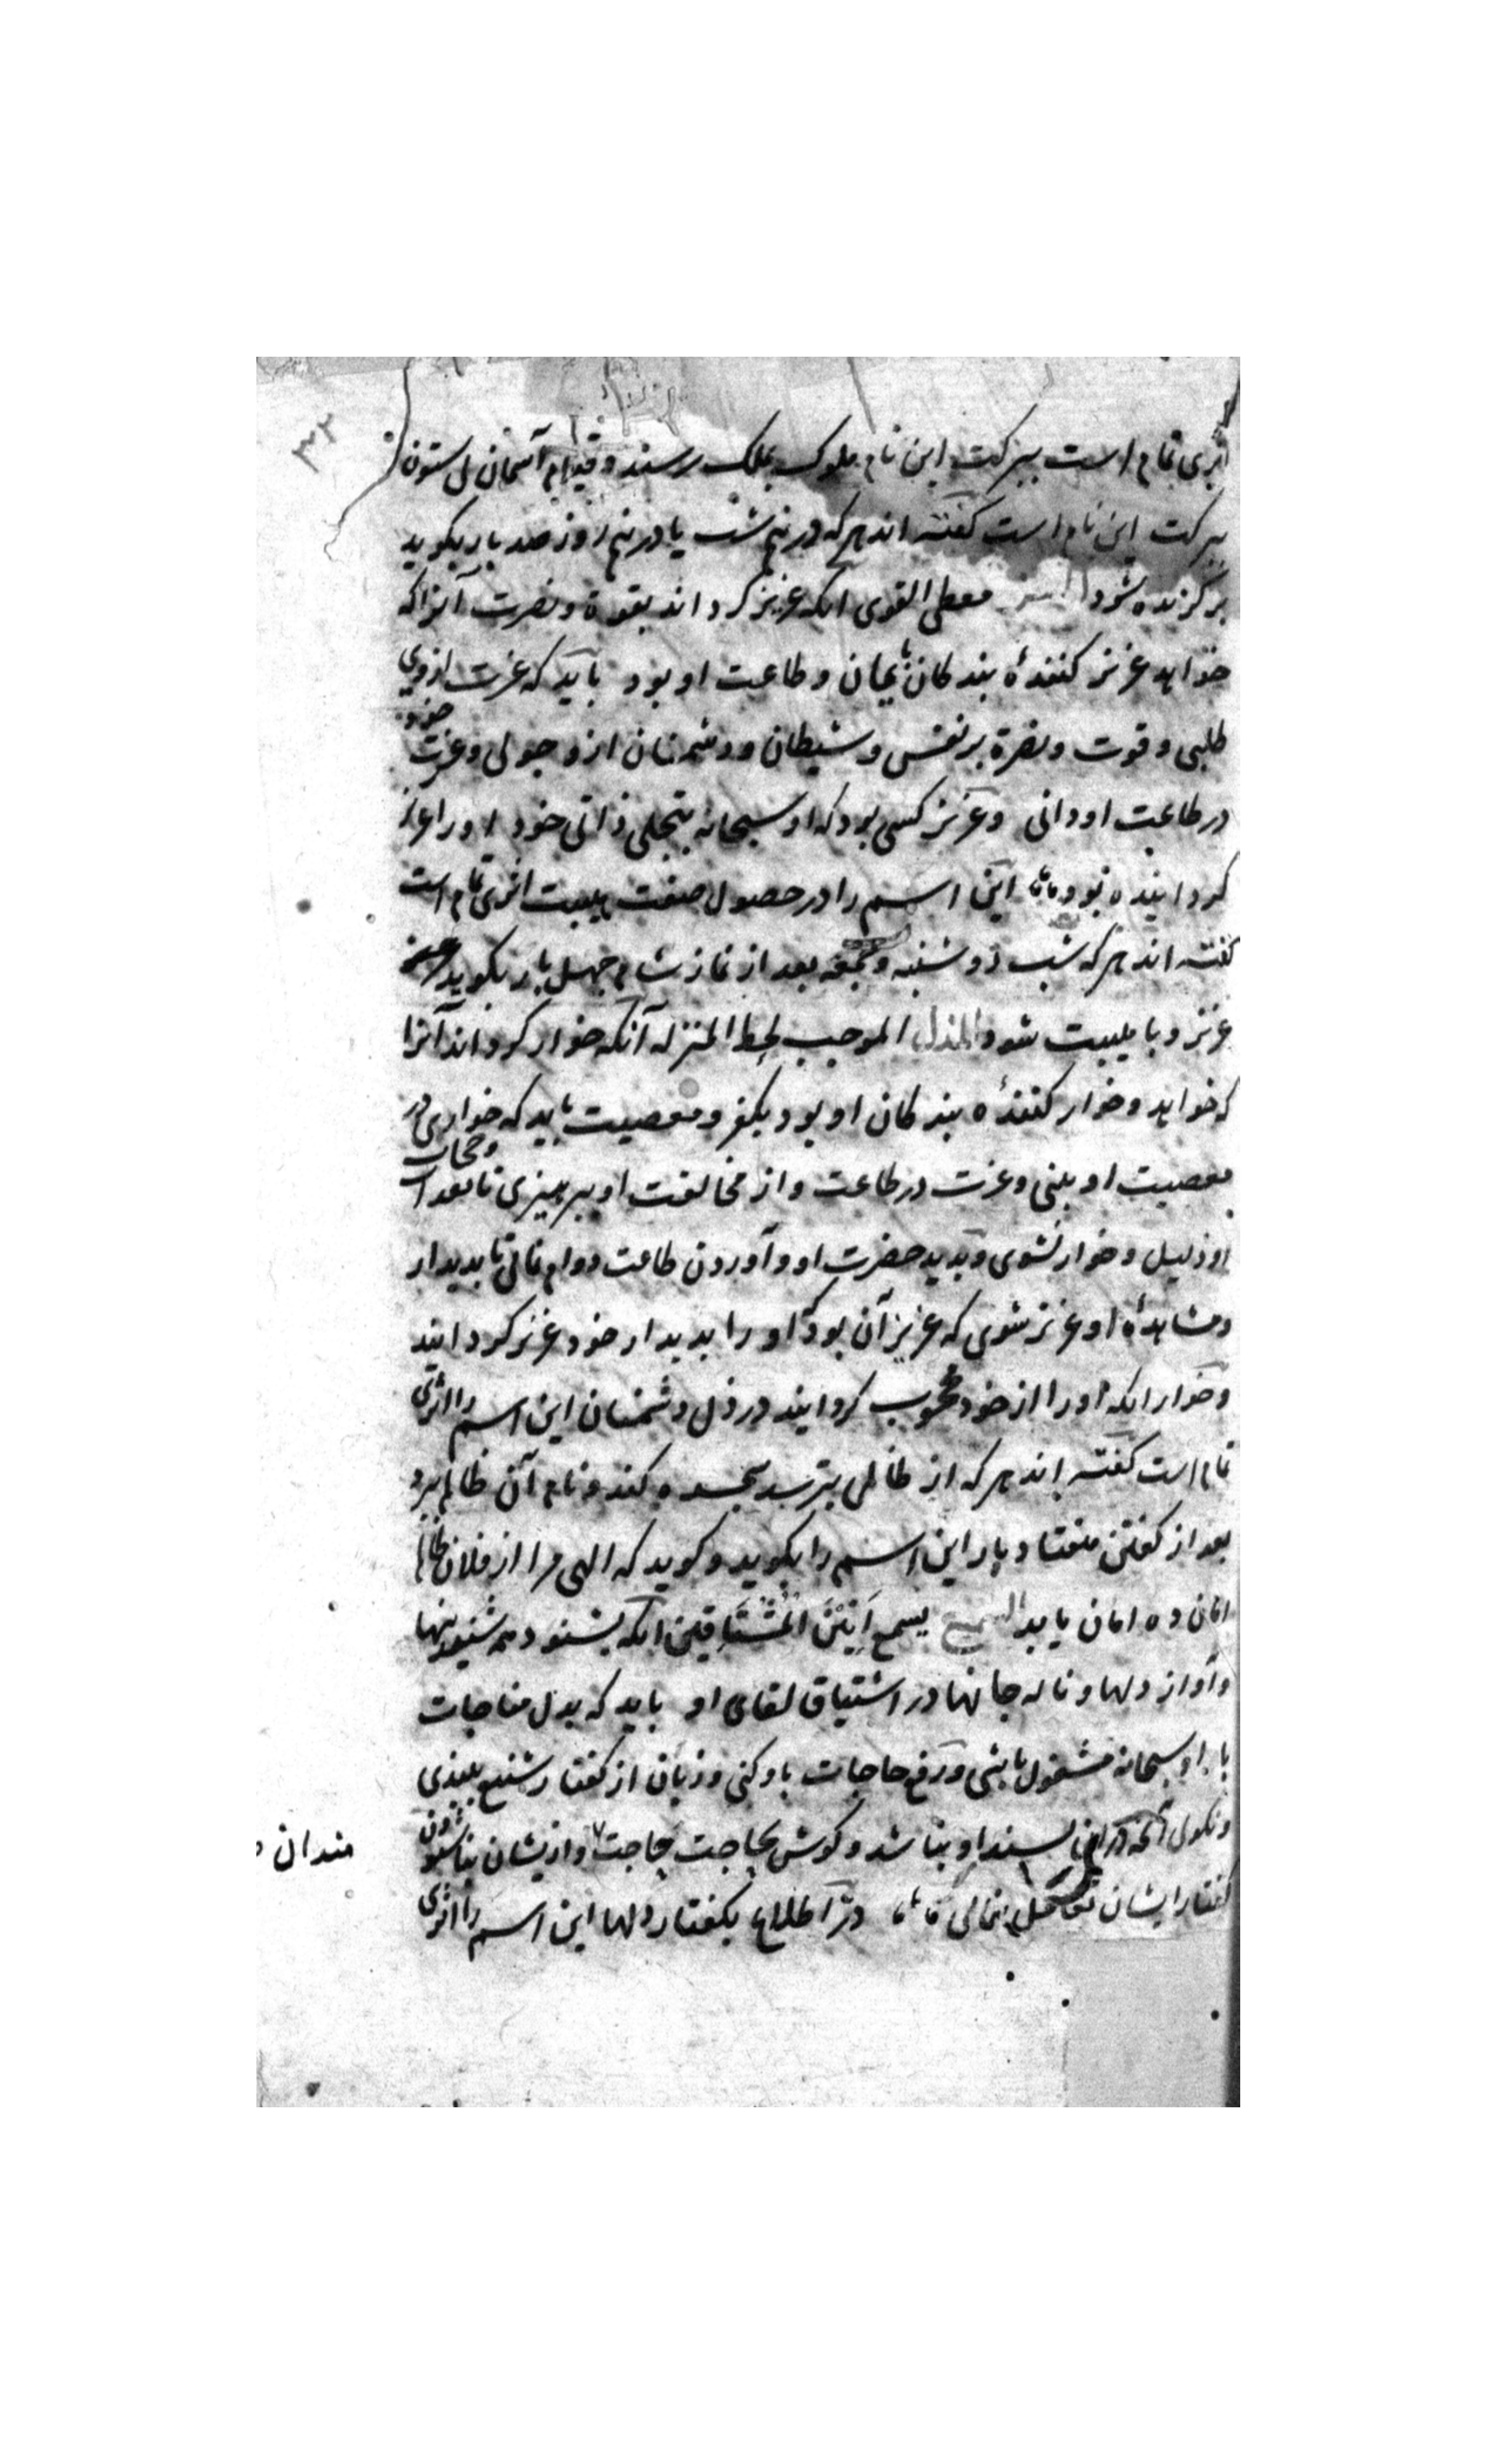 اثری تمام است ببرکت این نام ملوک بملک رسند و قیام آسمان بی ستون
ببرکت این نام است گفته اند هر که در نیم شب یا در نیم روز صد بار بگوید
برگزیده شود معطی القوی انکه عزیز کرداند بقوة و نصرت آنرا که
خواهد عزیز کنندهٔ بندکان بایمان و طاعت او بود باید که عزت از وی
طلبی و قوت و نصرة بر نفس و شیطان و دشمنان ازو جوئی و عزت خود
در طاعت او دانی و عزیز کسی بود که او سبحانه بتجلی ذاتی خود او را
کردانیده بود این اسم را در حصول صفت هیبت اثری تمام است
گفته اند هر که شب دوشنبه و جمعه بعد از نماز شام چهل بار بگوید
عزیز و با هیبت شود المذل الموجب لحط المنزله آنکه خوار کرداند آنرا
که خواهد و خوار کنندهٔ بندکان او بود بکفر و معصیت باید که خواری در
معصیت او بینی و عزت در طاعت و از مخالفت او بپرهیزی تا بعذاب و حجاب
او ذلیل و خوار نشوی و بدید حضرت او و آوردن طاعت دوام نمائی تا بدیدار
و مشاهدهٔ او عزیز شوی که عزیز آن بود که او را بدیدار خود عزیز کردانید
و خوار انکه او را از خود محجوب کردانید در ذل دشمنان این اسم را اثری
تمام است گفته اند هر که از ظالمی بترسد سجده کند و نام آن ظالم برد
بعد از گفتن هفتاد بار این اسم را بگوید و کوید که الهی مرا از فلان ظالم
امان ده امان یابد السمیع یسمع انین المشتاقین انکه بشنود همه شنیدنیها
و آواز دلها و ناله جانها در اشتیاق لقای او باید که بدل مناجات
با او سبحانه مشغول باشی و رفع حاجات باو کنی و زبان از گفتار شنیع ببندی
و نکوئی آنچه پسند او نباشد و کوش بحاجت
گفتار ایشان نمائی در اطلاع بکفتار دلها این اسم را اثری
مندان